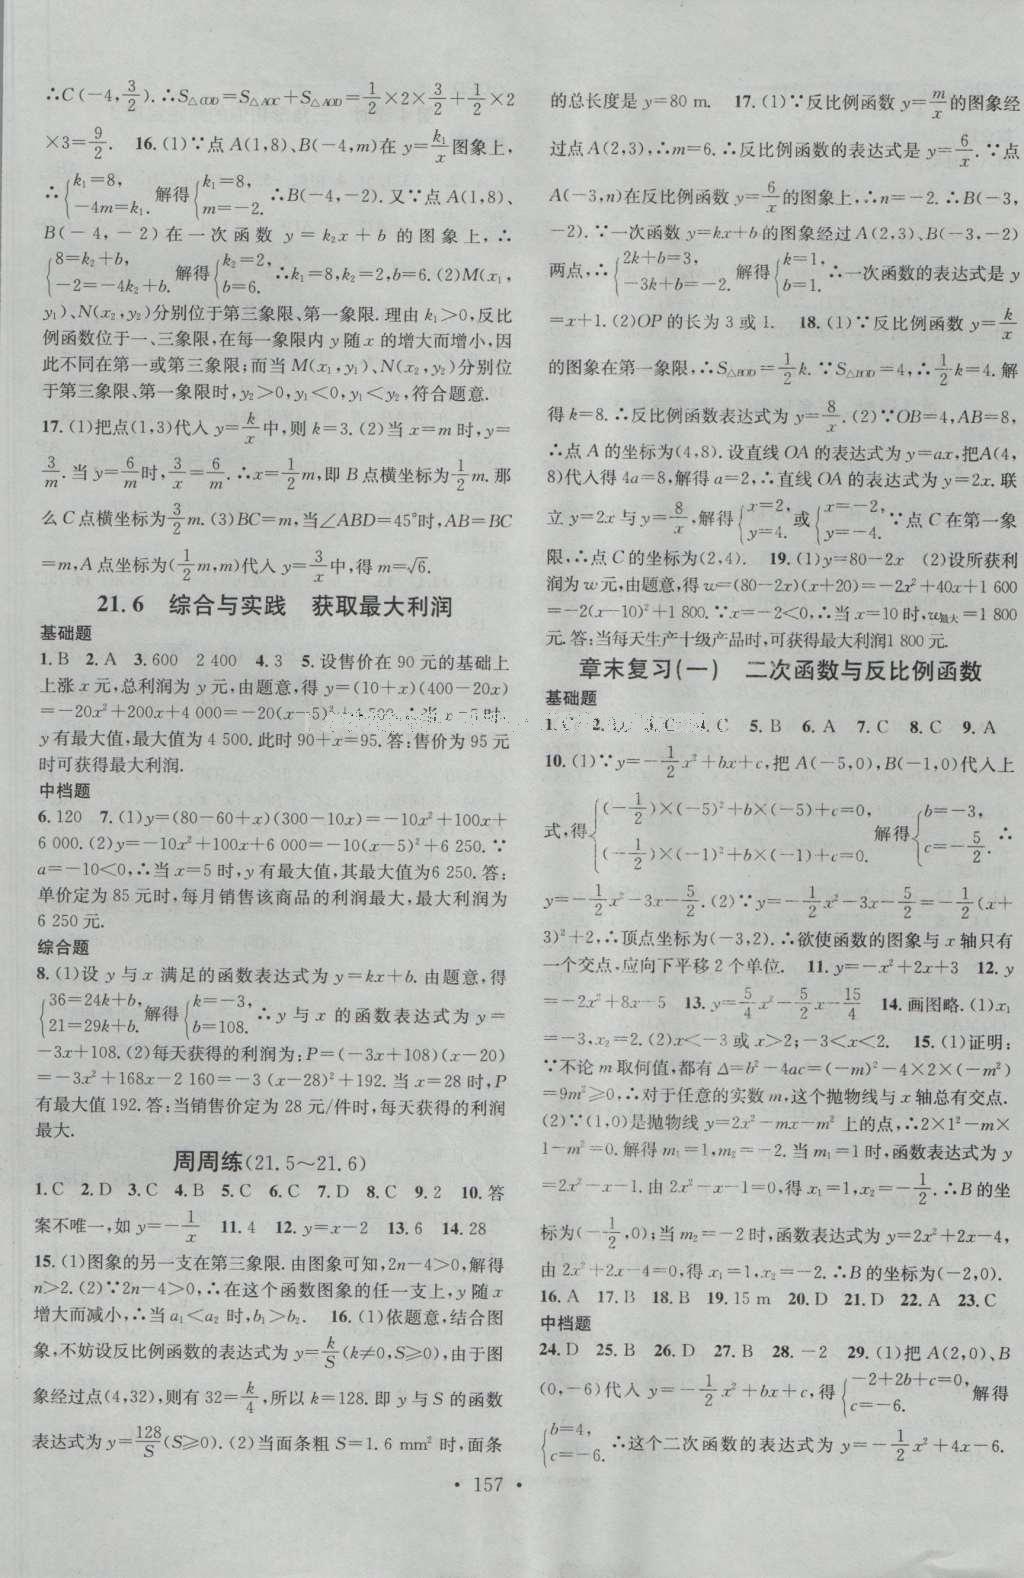 ∴C(-4,3/2).∴S△COD=S△AOC+S△AOD=1/2×2×3/2+1/2×2
×3=9/2. 16.(1)∵点 A(1,8)、B(-4,m)在 y=k₁/x图象上,
∴{k₁=8, -4m=k₁. 解得{k₁=8, m=-2. ∴B(-4,-2).又∵点 A(1,8)、
B(-4,-2)在一次函数 y=k₂x+b 的图象上,∴
{8=k₂+b, -2=-4k₂+b. 解得{k₂=2, b=6. ∴k₁=8,k₂=2,b=6.(2)M(x₁,
y₁)、N(x₂,y₂)分别位于第三象限、第一象限.理由k₁>0,反比
例函数位于一、三象限,在每一象限内 y 随 x 的增大而增小,因
此不同在第一或第三象限;而当 M(x₁,y₁)、N(x₂,y₂)分别位
于第三象限、第一象限时,y₂>0,y₁<0,y₁<y₂,符合题意.
17.(1)把点(1,3)代入 y=k/x中,则 k=3.(2)当 x=m 时,y=
3/m.当 y=6/m时,3/x=6/m.∴x=1/2m,即 B 点横坐标为1/2m.那
么 C 点横坐标为3/2m.(3)BC=m,当∠ABD=45°时,AB=BC
=m,A 点坐标为(1/2m,m)代入 y=3/x中,解得 m=√6.
21.6 综合与实践 获取最大利润
基础题
1.B 2.A 3.600 2 400 4.3 5.设售价在 90 元的基础上
上涨 x 元,总利润为 y 元,由题意,得 y=(10+x)(400-20x)
=-20x²+200x+4 000=-20(x-5)²+4 500.∴当 x=5时,
y 有最大值,最大值为 4 500.此时 90+x=95.答:售价为 95 元
时可获得最大利润.
中档题
6.120 7.(1)y=(80-60+x)(300-10x)=-10x²+100x+
6 000.(2)y=-10x²+100x+6 000=-10(x-5)²+6 250.∵
a=-10<0,∴当 x=5 时,y 有最大值,其最大值为6 250.答:
单价定为 85 元时,每月销售该商品的利润最大,最大利润为
6 250 元.
综合题
8.(1)设 y 与 x 满足的函数表达式为 y=kx+b.由题意,得
{36=24k+b, 21=29k+b. 解得{k=-3, b=108. ∴y 与 x 的函数表达式为 y=
-3x+108.(2)每天获得的利润为:P=(-3x+108)(x-20)
=-3x²+168x-2 160=-3(x-28)²+192.当 x=28 时,P
有最大值 192.答:当销售价定为 28 元/件时,每天获得的利润
最大.
周周练(21.5~21.6)
1.C 2.D 3.C 4.B 5.C 6.C 7.D 8.C 9.2 10.答
案不唯一,如 y=-1/x 11.4 12.y=x-2 13.6 14.28
15.(1)图象的另一支在第三象限.由图象可知,2n-4>0,解得
n>2.(2)∵2n-4>0,∴在这个函数图象的任一支上,y 随 x
增大而减小,∴当 a₁<a₂ 时,b₁>b₂. 16.(1)依题意,结合图
象,不妨设反比例函数的表达式为 y=k/S(k≠0,S≥0),由于图
象经过点(4,32),则有 32=k/4,所以 k=128.即 y 与 S 的函数
表达式为 y=128/S(S≥0).(2)当面条粗 S=1.6 mm² 时,面条
的总长度是 y=80 m. 17.(1)∵反比例函数 y=m/x的图象经
过点 A(2,3),∴m=6.∴反比例函数的表达式是 y=6/x.∵点
A(-3,n)在反比例函数 y=6/x的图象上,∴n=-2.∴B(-3,
-2).∵一次函数 y=kx+b 的图象经过 A(2,3)、B(-3,-2)
两点,∴{2k+b=3, -3k+b=-2. 解得{k=1, b=1. ∴一次函数的表达式是 y
=x+1.(2)OP 的长为 3 或 1. 18.(1)∵反比例函数 y=k/x
的图象在第一象限,∴S△BOD=1/2k.∵S△BOD=4,∴1/2k=4.解
得 k=8.∴反比例函数表达式为 y=8/x.(2)∵OB=4,AB=8,
∴点 A 的坐标为(4,8).设直线 OA 的表达式为 y=ax,把A(4,
8)代入得 4a=8,解得 a=2,∴直线 OA 的表达式为 y=2x.联
立 y=2x 与 y=8/x,解得{x=2, y=4. 或{x=-2, y=-4. ∵点 C 在第一象
限,∴点 C 的坐标为(2,4). 19.(1)y=80-2x (2)设所获利
润为 w 元,由题意,得 w=(80-2x)(x+20)=-2x²+40x+1 600
=-2(x-10)²+1 800.∵x=-2<0,∴当 x=10 时,w最大=1 800
元.答:当每天生产十级产品时,可获得最大利润1 800 元.
章末复习(一) 二次函数与反比例函数
基础题
1. 2.D 3.C 4.C 5.B 6.A 7.C 8.C 9.A
10.(1)∵y=-1/2x²+bx+c,把 A(-5,0),B(-1,0)代入上
式,得{(-1/2)×(-5)²+b×(-5)+c=0, (-1/2)×(-1)²+b×(-1)+c=0. 解得{b=-3, c=-5/2. ∴
y=-1/2x²-3x-5/2.(2)∵y=-1/2x²-3x-5/2=-1/2(x+
3)²+2,∴顶点坐标为(-3,2).∴欲使函数的图象与 x 轴只有
一个交点,应向下平移 2 个单位. 11.y=-x²+2x+3 12.y
=-2x²+8x-5 13.y=5/4x²-5/2x-15/4 14.画图略.(1)x₁
=-3,x₂=2.(2)x<-3 或 x>2;-3<x<2. 15.(1)证明:
∵不论 m 取何值,都有 Δ=b²-4ac=(-m)²-4×2×(-m²)
=9m²≥0,∴对于任意的实数 m,这个抛物线与 x 轴总有交点.
(2)∵(1,0)是抛物线 y=2x²-mx-m² 上的点,∴2×1²-m×
1-m²=0.解得 m₁=1,m₂=-2.当 m₁=1 时,函数表达式为 y
=2x²-x-1.由 2x²-x-1=0,得 x₁=1,x₂=-1/2.∴B 的坐
标为(-1/2,0);当 m₂=-2 时,函数表达式为 y=2x²+2x-4,
由 2x²+2x-4=0,得 x₁=1,x₂=-2.∴B 的坐标为(-2,0).
16.A 17.B 18.B 19.15 m 20.D 21.D 22.A 23.C
中档题
24.D 25.B 26.B 27.D 28.-2 29.(1)把 A(2,0)、B
(0,-6)代入 y=-1/2x²+bx+c,得{-2+2b+c=0, c=-6. 解得
{b=4, c=-6. ∴这个二次函数的表达式为 y=-1/2x²+4x-6.
• 157 •